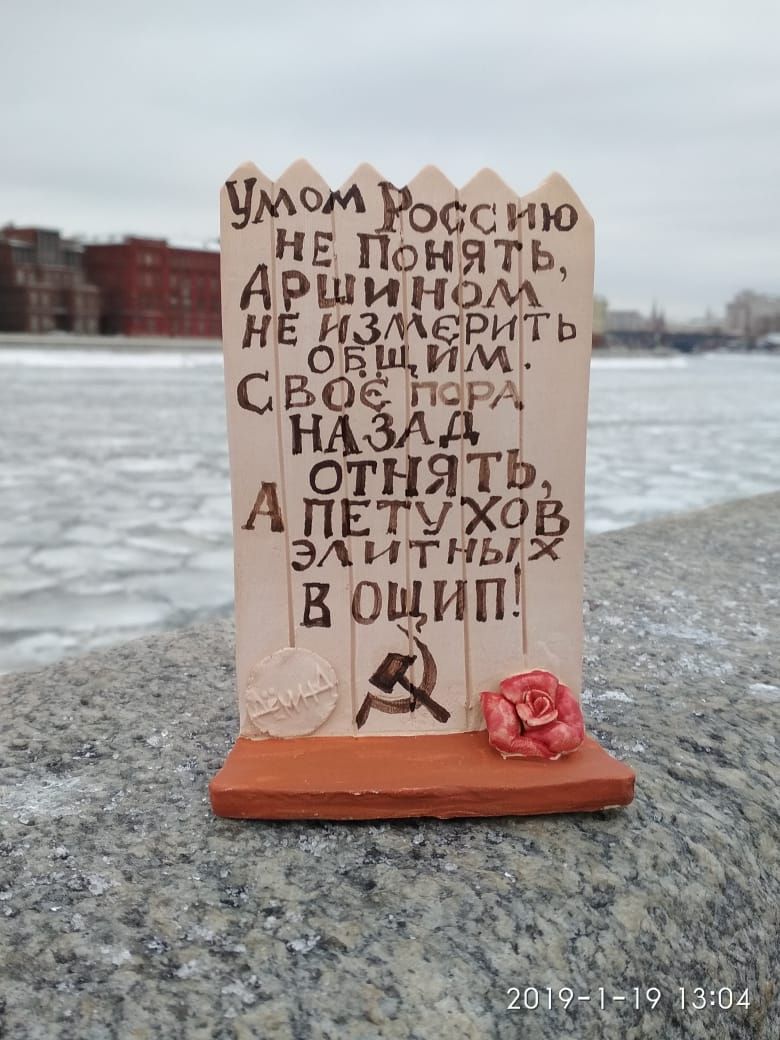 Умом Россию
не понять,
Аршином
не измерить
общим.
Своё пора
назад
отнять,
А петухов
элитных
в ощип!
Дёмина
2019-1-19 13:04